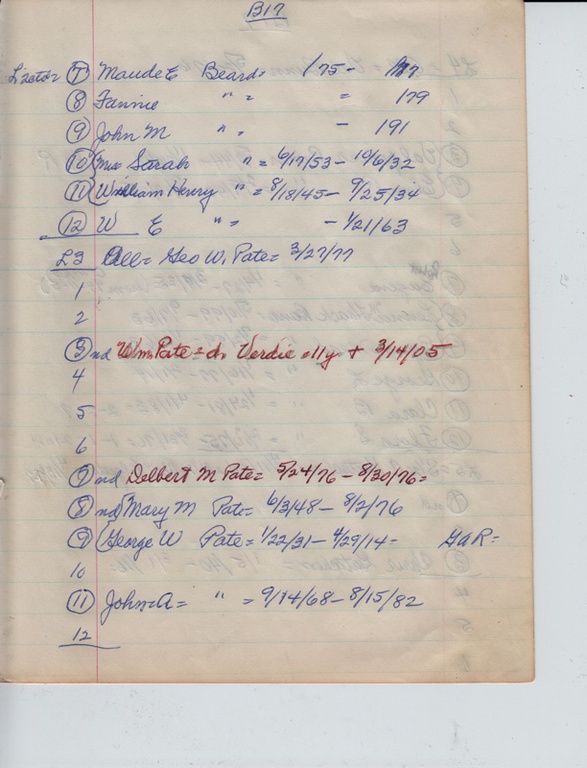 B17
⑦ Maude E Beard = 175 -
⑧ Fannie " = = 179
⑨ John M " = - 191
⑩ Mrs Sarah " = 6/17/53 - 10/6/32
⑪ William Henry " = 8/18/45 - 9/25/34
⑫ W E " = - 1/21/63
L3 All = Geo W. Pate = 3/27/77
1
2
③ nd Wm Pate = d. Verdie = 11y + 3/14/05
4
5
6
⑦ nd Delbert M Pate = 5/24/76 - 8/30/76 =
⑧ nd Mary M Pate = 6/3/48 - 8/2/76
⑨ George W Pate = 1/22/31 - 4/29/14 = GAR =
10
⑪ John = A = " = 9/14/68 - 8/15/82
12